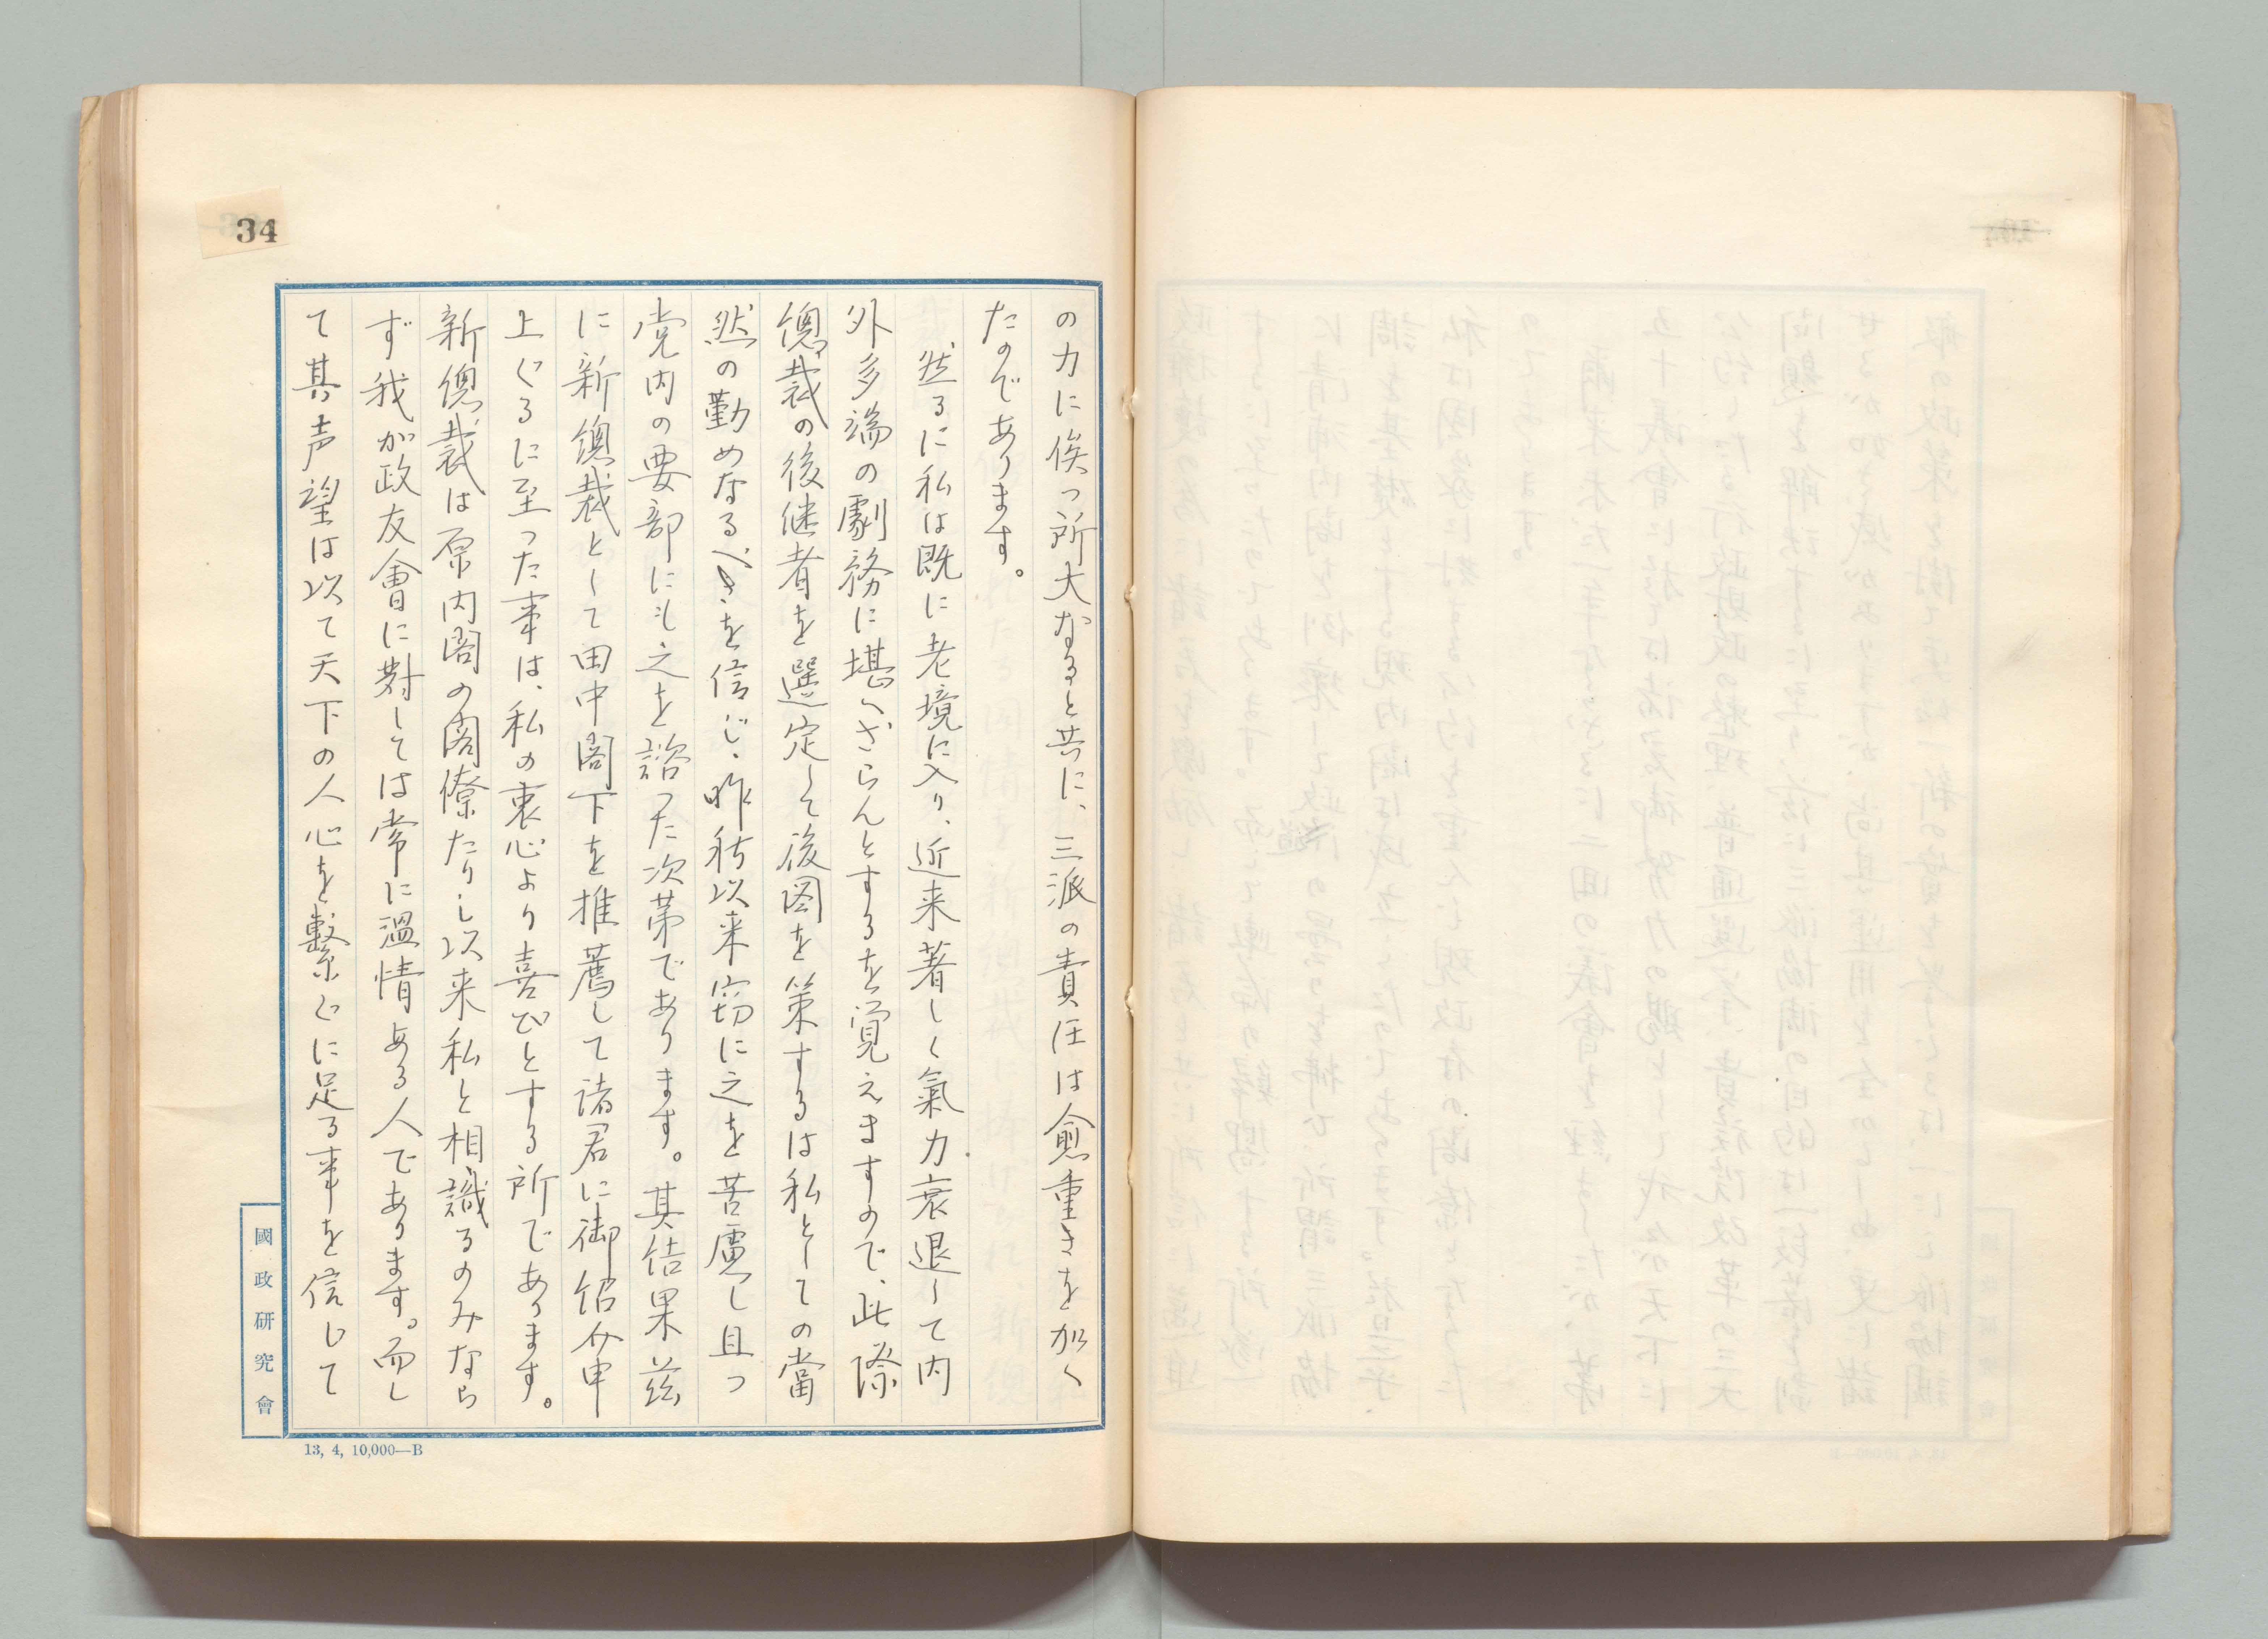 34
の力に俟つ所大なると共に、三派の責任は愈重きを加へ
たのであります。
然るに私は既に老境に入り、近来著しく氣力衰退して内
外多端の劇務に堪へざらんとするを覚えますので、此際
總裁の後継者を選定して後図を策するは私としての當
然の勤めなるべきを信じ、昨秋以来窃に之を苦慮し且つ
党内の要部にも之を諮つた次第であります。其结果茲
に新總裁として田中閣下を推薦して諸君に御紹介申
上ぐるに至つた事は、私の衷心より喜びとする所であります。
新總裁は原内閣の閣僚たりし以来私と相識るのみなら
ず我が政友會に對しては常に温情ある人であります。而し
て其声望は以て天下の人心を繋ぐに足る事を信じて
國政研究會
13, 4, 10,000—B